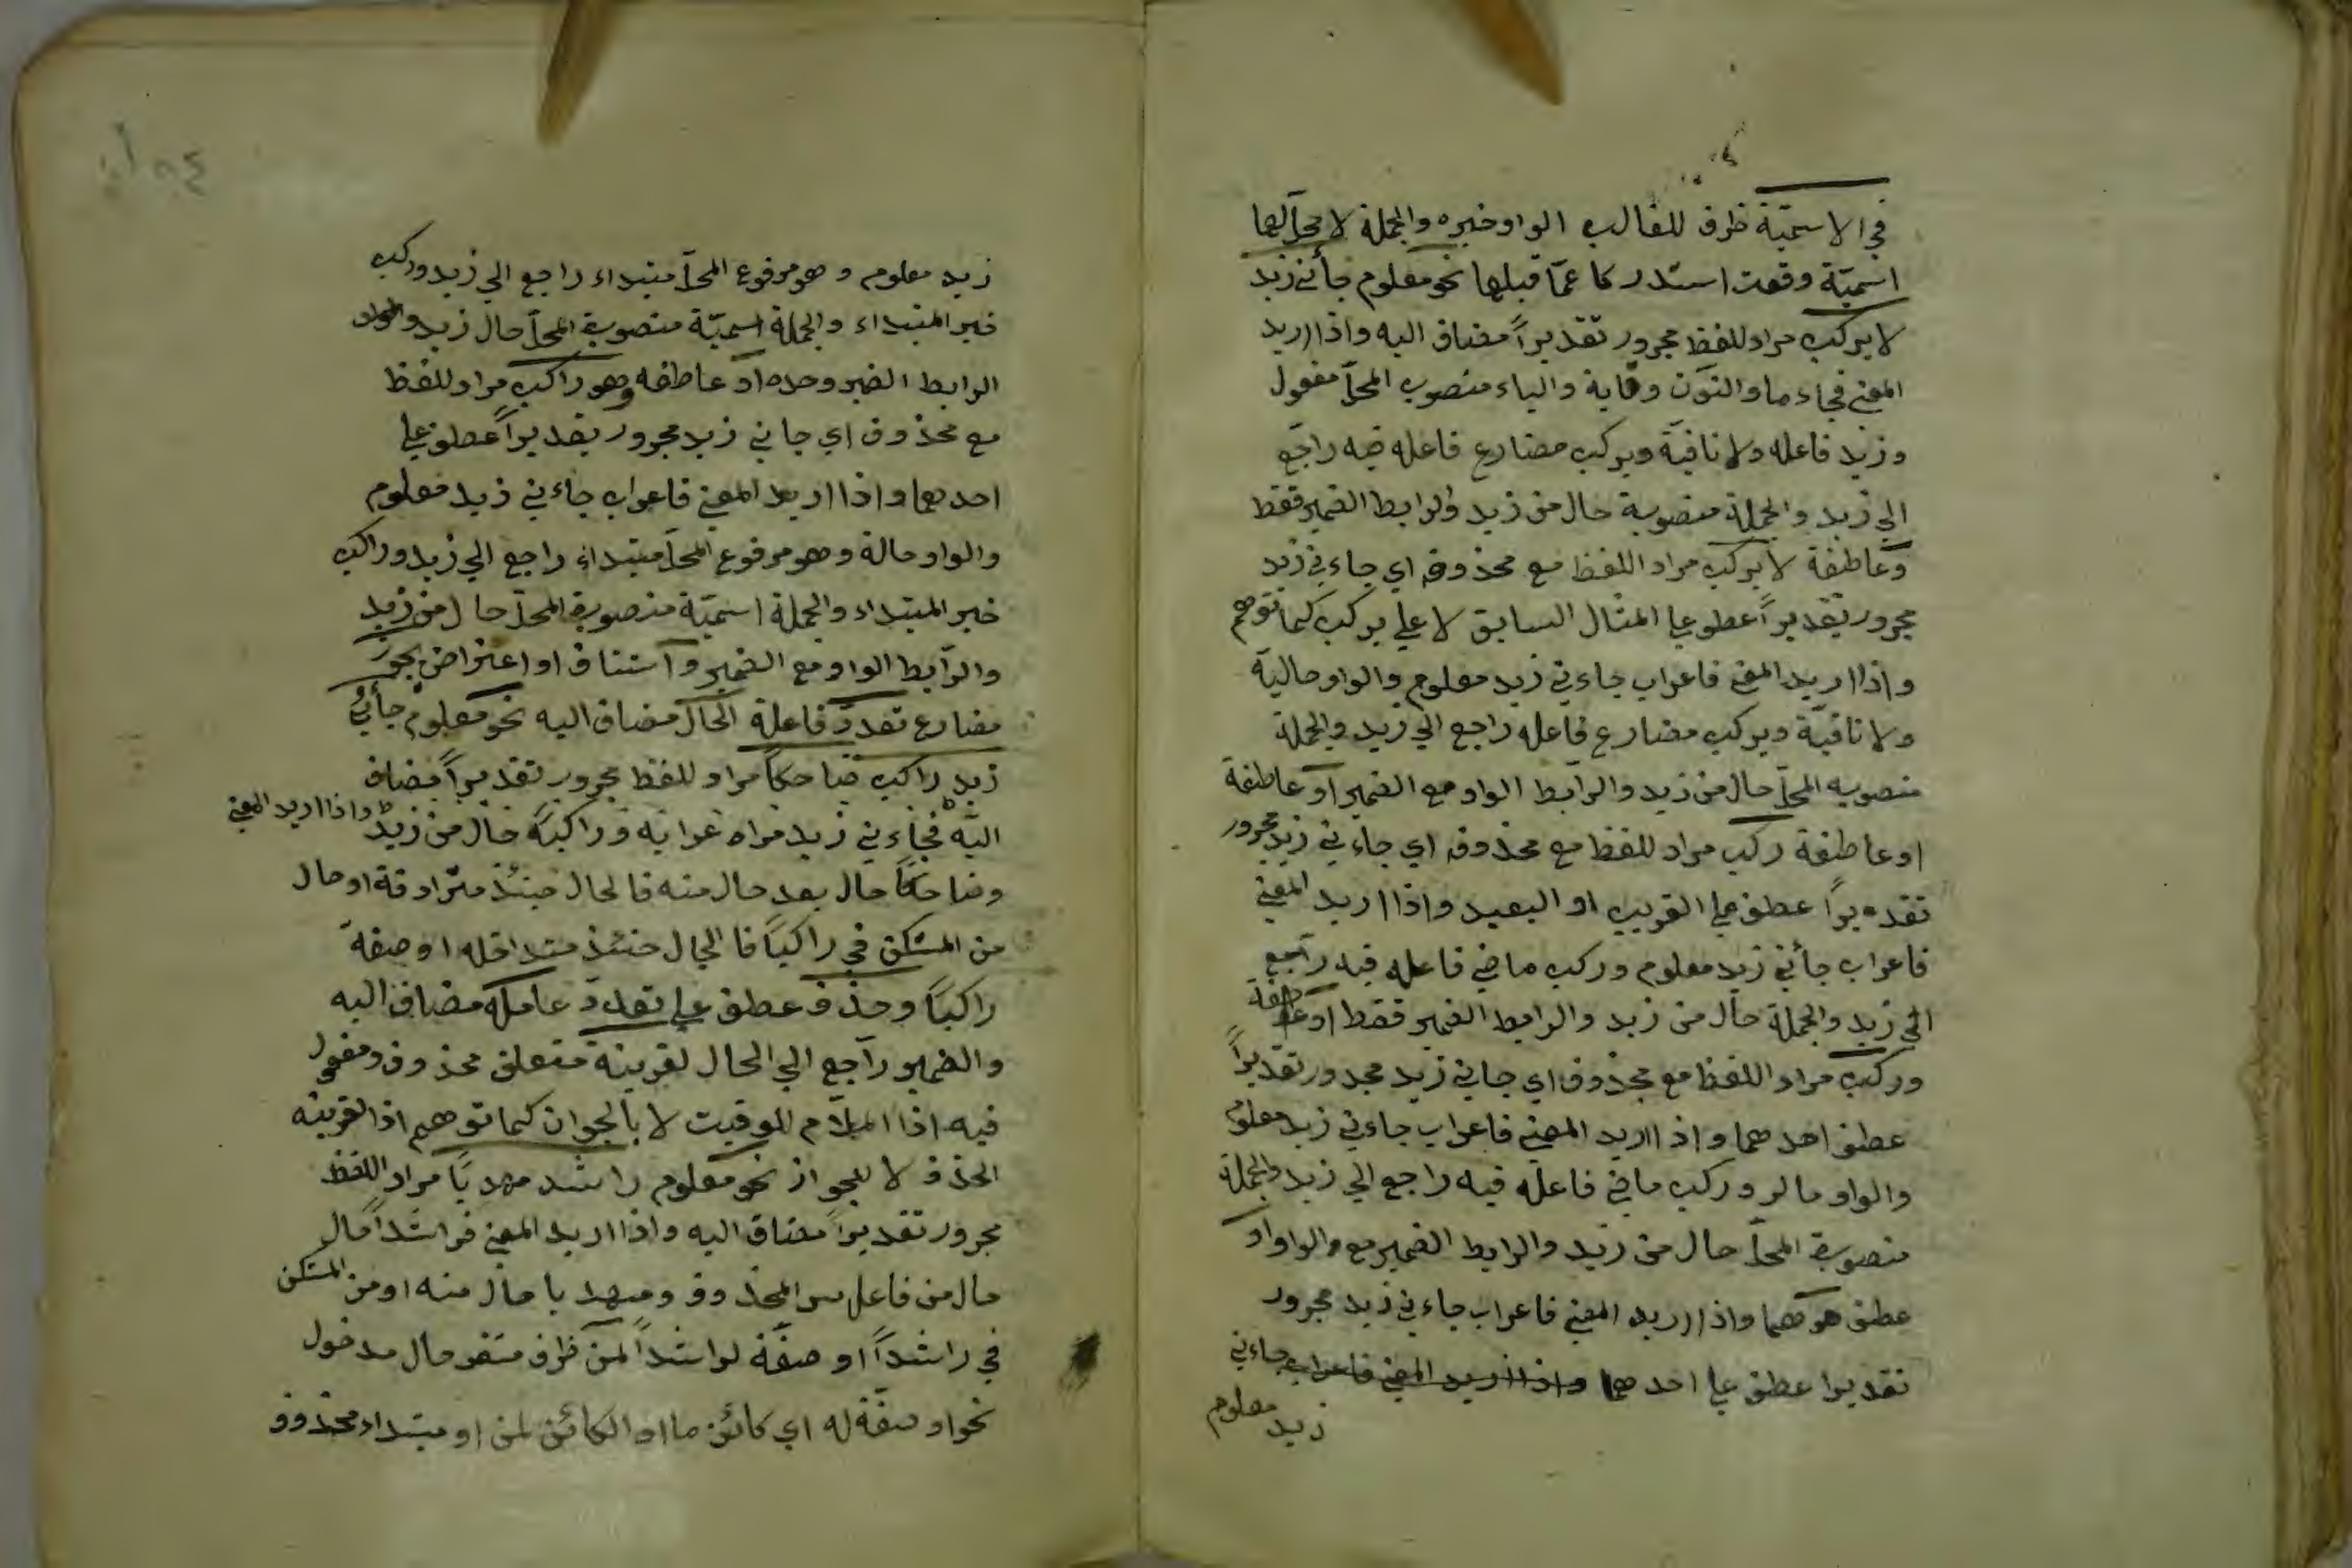 في الاسميّة ظرف للغالب الواو خبره والجملة لا محلّ لها
اسميّة وقعت استدراكا عمّا قبلها نحو معلوم جائني زيد
لا يركب مراد للفظ مجرور تقديراً مضاف اليه واذا اريد
المعنى فجاء ما والنون وقاية والياء منصوب المحلّ مفعول
وزيد فاعله ولا نافية ويركب مضارع فاعله فيه راجع
الي زيد والجملة منصوبة حال من زيد والرابط الضمير فقط
وعاطفة لا يركب مراد اللفظ مع محذوف اي جاءني زيد
مجرور تقديراً عطف علي المثال السابق لا علي يركب كما توهم
واذا اريد المعنى فاعراب جاءني زيد معلوم والواو حالية
ولا نافية ويركب مضارع فاعله راجع الي زيد والجملة
منصوبه المحلّ حال من زيد والرابط الواو مع الضمير او عاطفة
او عاطفة ركب مراد للفظ مع محذوف اي جاءني زيد مجرور
تقديراً عطف علي القريب او البعيد واذا اريد المعني
فاعراب جائني زيد معلوم وركب ماضي فاعله فيه راجع
الي زيد والجملة حال من زيد والرابط الضمير فقط او عاطفة
وركب مراد اللفظ مع محذوف اي جاني زيد مجرور تقديراً
عطف احدهما واذا اريد المعني فاعراب جاءني زيد معلوم
والواو وركب ماضي فاعله فيه راجع الي زيد والجملة
منصوبة المحلّ حال من زيد والرابط الضمير مع والواو او
عطف واذا اريد المعني فاعراب جاءني زيد مجرور
تقديرا عطف علي احدهما واذا اريد المعني فاعراب جاءني
زيد معلوم
زيد معلوم وهو مرفوع المحلّ مبتداء راجع الي زيد وركب
خبر المبتداء والجملة اسميّة منصوبة المحلّ حال زيد والواو
الرابط الضمير وحده او عاطفه وهو راكب مراد للفظ
مع محذوف اي جاني زيد مجرور تقديراً عطف علي
احدهما واذا اريد المعني فاعراب جاءني زيد معلوم
والواو حالة وهو مرفوع المحلّ مبتداء راجع الي زيد وراكب
خبر المبتداء والجملة اسميّة منصوبة المحلّ حال من زيد
والرابط الواو مع الضمير واستناف او اعتراض يجوز
مضارع تعدد فاعلة الحال مضاف اليه نحو معلوم جائني
زيد راكب ضاحكاً مراد للفظ مجرور تقديراً مضاف
اليه فجاءني زيد مراه وراكبا حال من زيد واذا اريد المعني
وضاحكاً حال بعد حال منه فالحال حينئذ مترادفة او حال
من المستكن في راكباً فالحال حينئذ متداخله او صفة
راكباً وحذف عطف علي تعدد عامله مضاف اليه
والضمير راجع الي الحال لقرينة متعلق محذوف ومفعول
فيه اذا اللام للوقيت لا بالجواز كما توهم اذ القرينه
الحذف لا للجواز نحو معلوم راشد مهديّا مراد اللفظ
مجرور تقديراً مضاف اليه واذا اريد المعني فراشداً حال
حال من فاعل سر المحذوف ومهديا حال منه او من المستكن
في راشداً او صفة لراشداً لمن ظرف مستقر حال مدخول
نحو او صفة له اي كائن ما او الكائن لمن او مبتداء محذوف